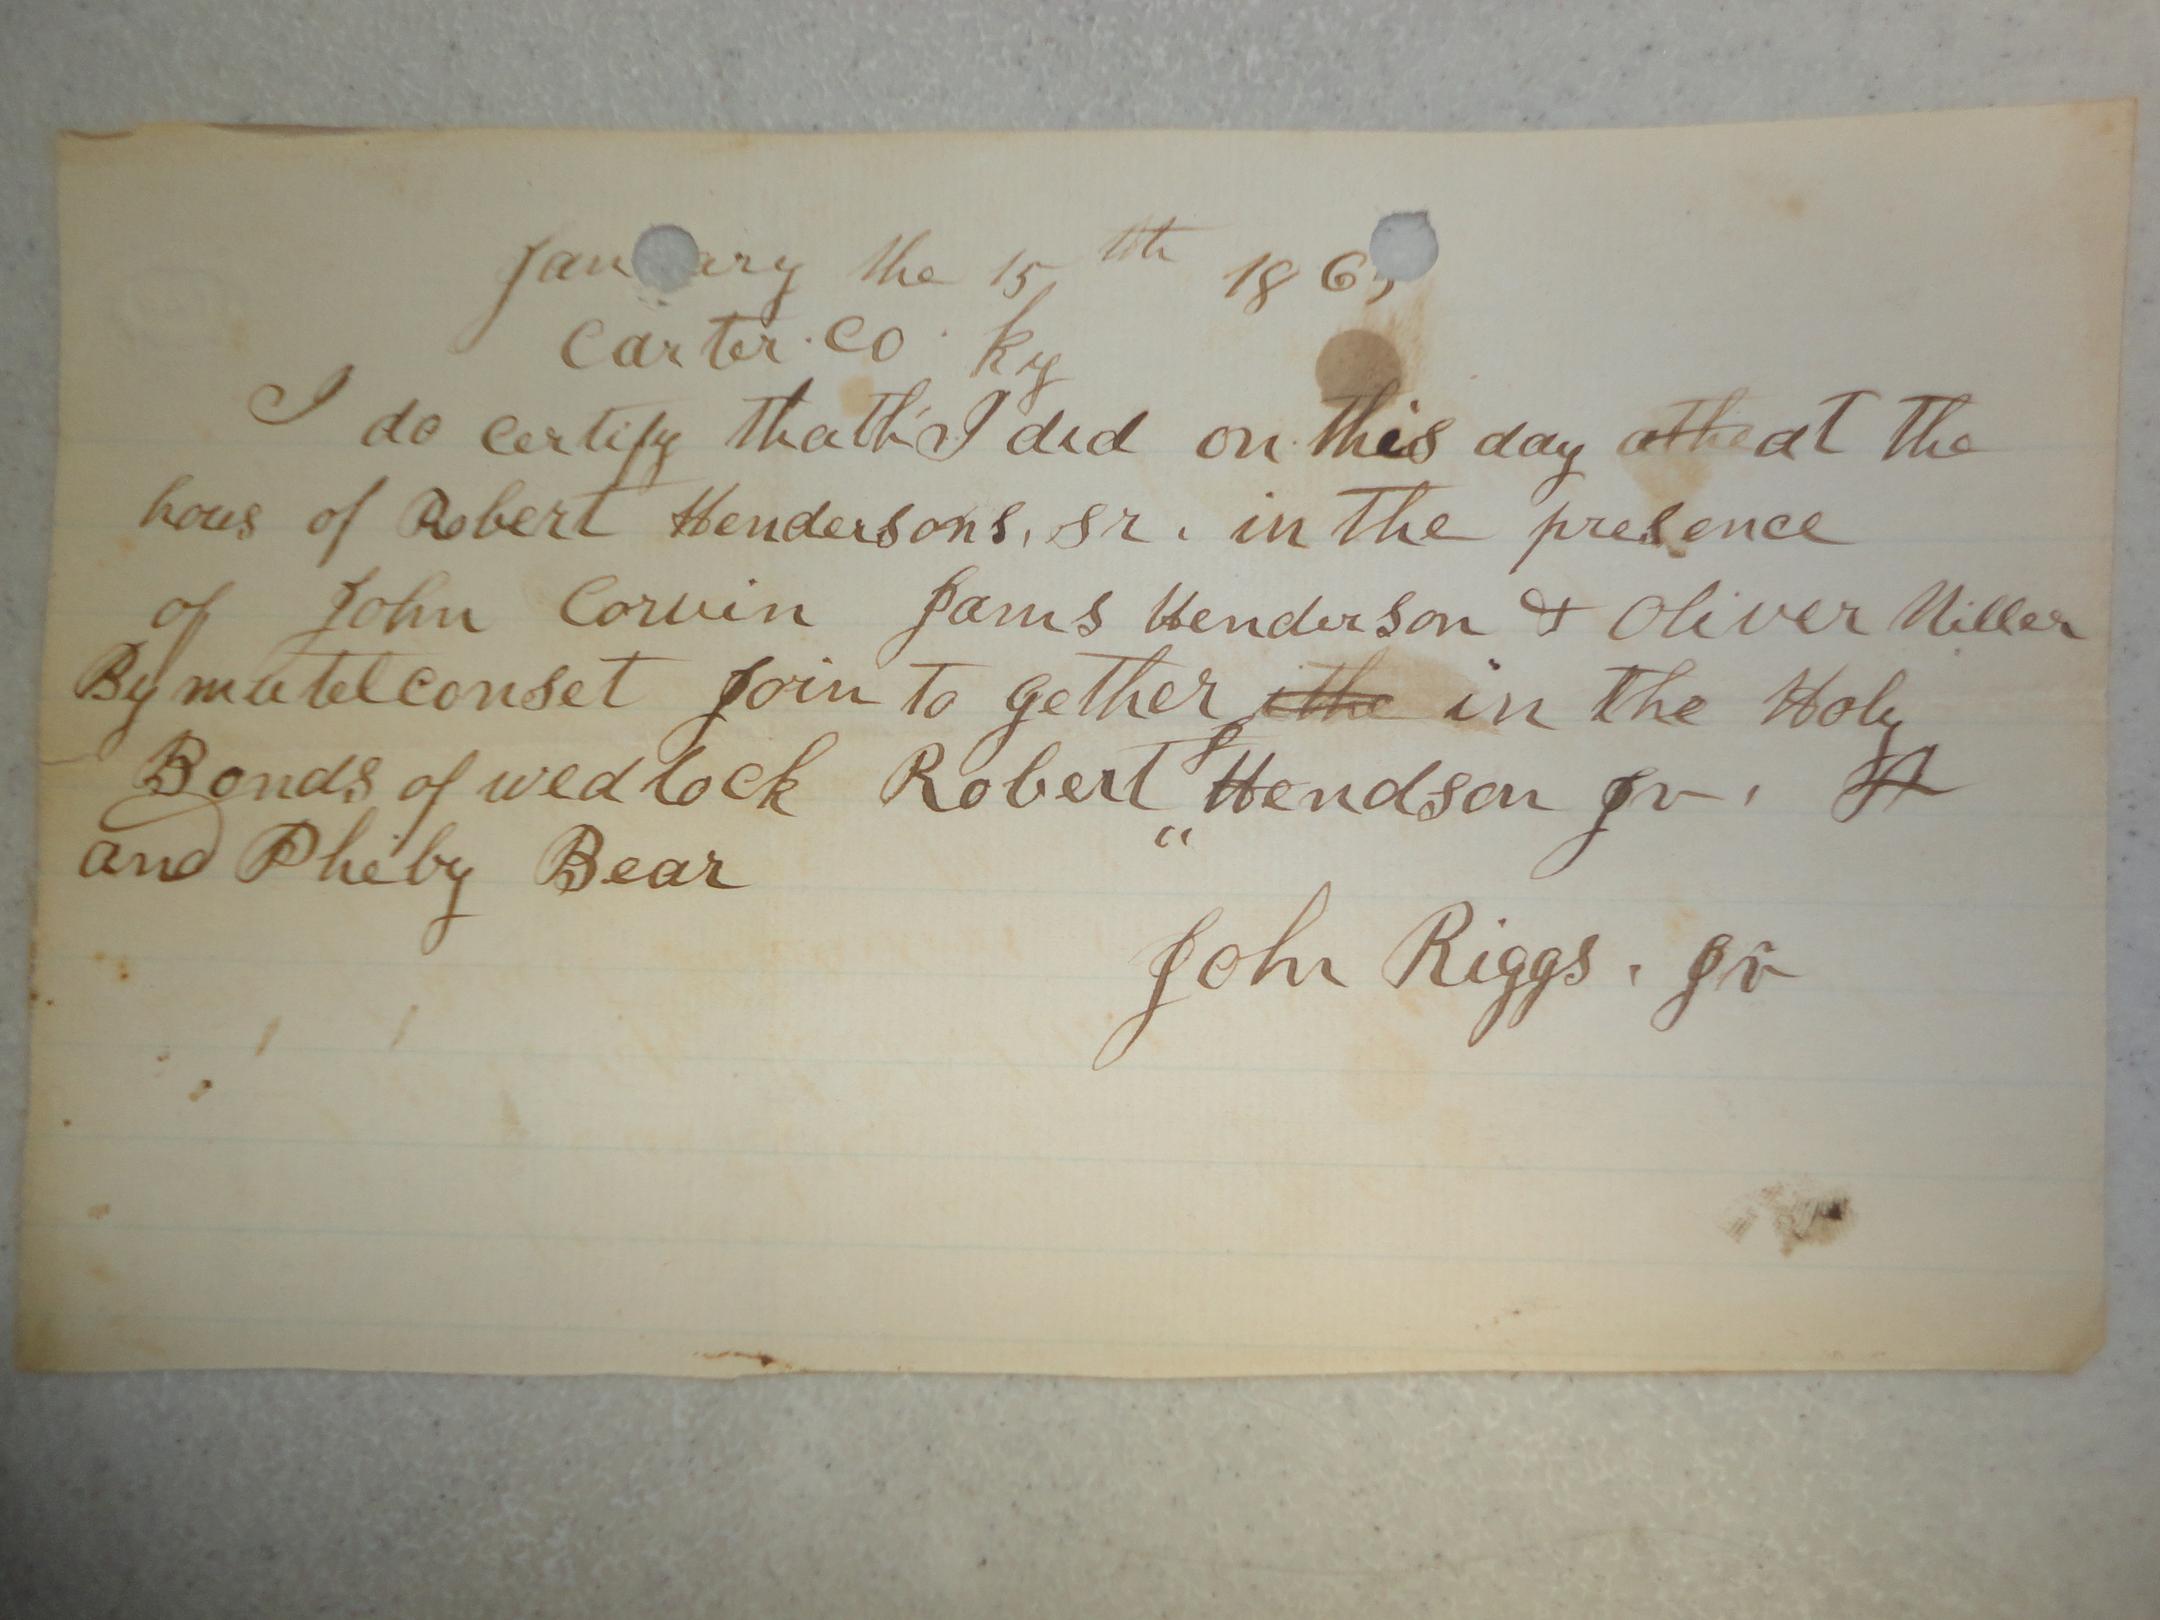 January the 15 tth 186
Carter. Co. Ky
I do certify that I did on this day at the
hous of Robert Hendersons, sr. in the presence
of John Corvin Jams Henderson & Oliver Miller
By mutel conset Join to gether in the Holy
Bonds of wed lock Robert " Hendson Jr.
and Pheby Bear
John Riggs. Jr